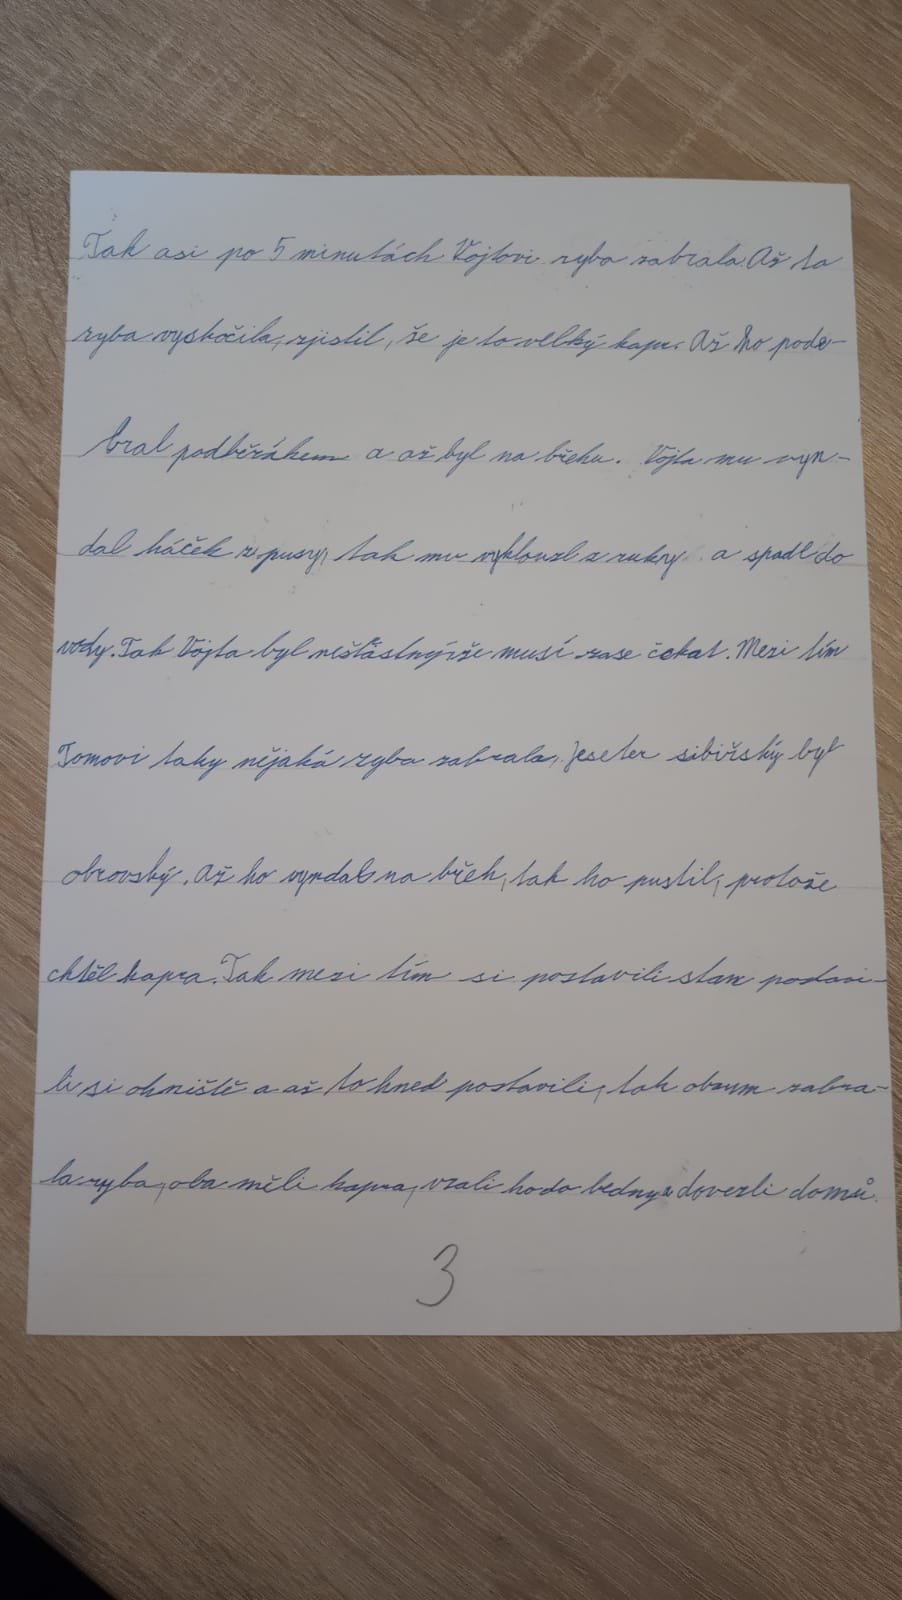 Tak asi po 5 minutách Vojtovi ryba zabrala. Až ta
ryba vyskočila, zjistil, že je to velký kapr. Až ho pode-
bral podběrákem a až byl na břehu. Vojta mu vyn-
dal háček z pusy, tak mu vyklouzl z ruky a spadl do
vody. Tak Vojta byl nešťastný, že musí zase čekat. Mezi tím
Tomovi taky nějaká ryba zabrala. Jeseter sibiřský byl
obrovský. Až ho vyndal na břeh, tak ho pustil, protože
chtěl kapra. Tak mezi tím si postavili stan postavi-
li si ohniště a až to hned postavili, tak oboum zabra-
la ryba, oba měli kapra, vzali ho do bedny a dovezli domů.
3